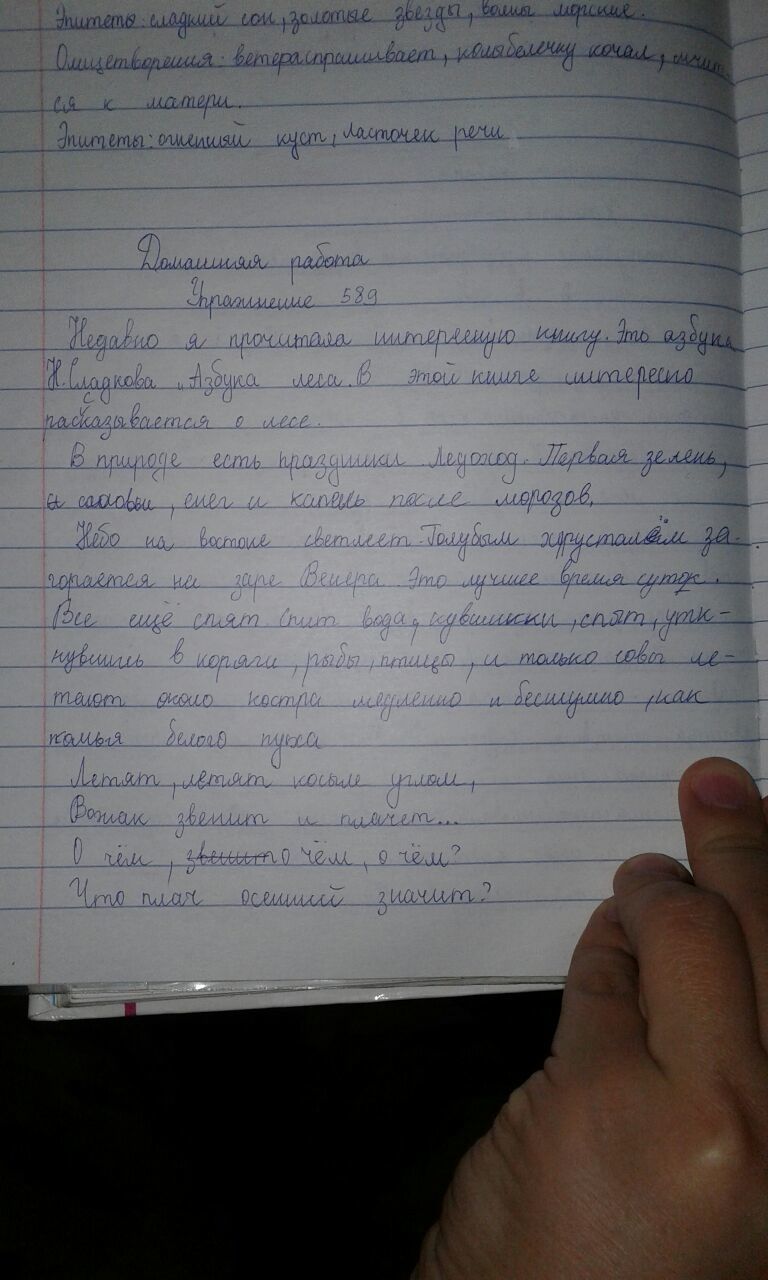 Эпитеты: сладкий сон, золотые звезды, волны морские.
Олицетворения: ветераспрашивает, колыбелечку качал, мчит-
ся к матери.
Эпитеты: огненный куст, ласточек речи
Домашняя работа
Упражнение 589
Недавно я прочитала интересную книгу. Это азбука
Н. Сладкова "Азбука леса. В этой книге интересно
рассказывается о лесе.
В природе есть праздники Ледоход. Первая зелень,
соловьи, снег и капель после морозов.
Небо на востоке светлеет. Голубым хрусталём за-
горается на заре Венера Это лучшее время суток.
Все ещё спят. Спит вода, кувшинки, спят, утк-
нувшись в коряги, рыбы, птицы, и только совы ле-
тают около костра медленно и бесшумно, как
комья белого пуха
Летят, летят косым углом,
Вожак звенит и плачет...
О чём, звенит о чём, о чём?
Что плач осенний значит?